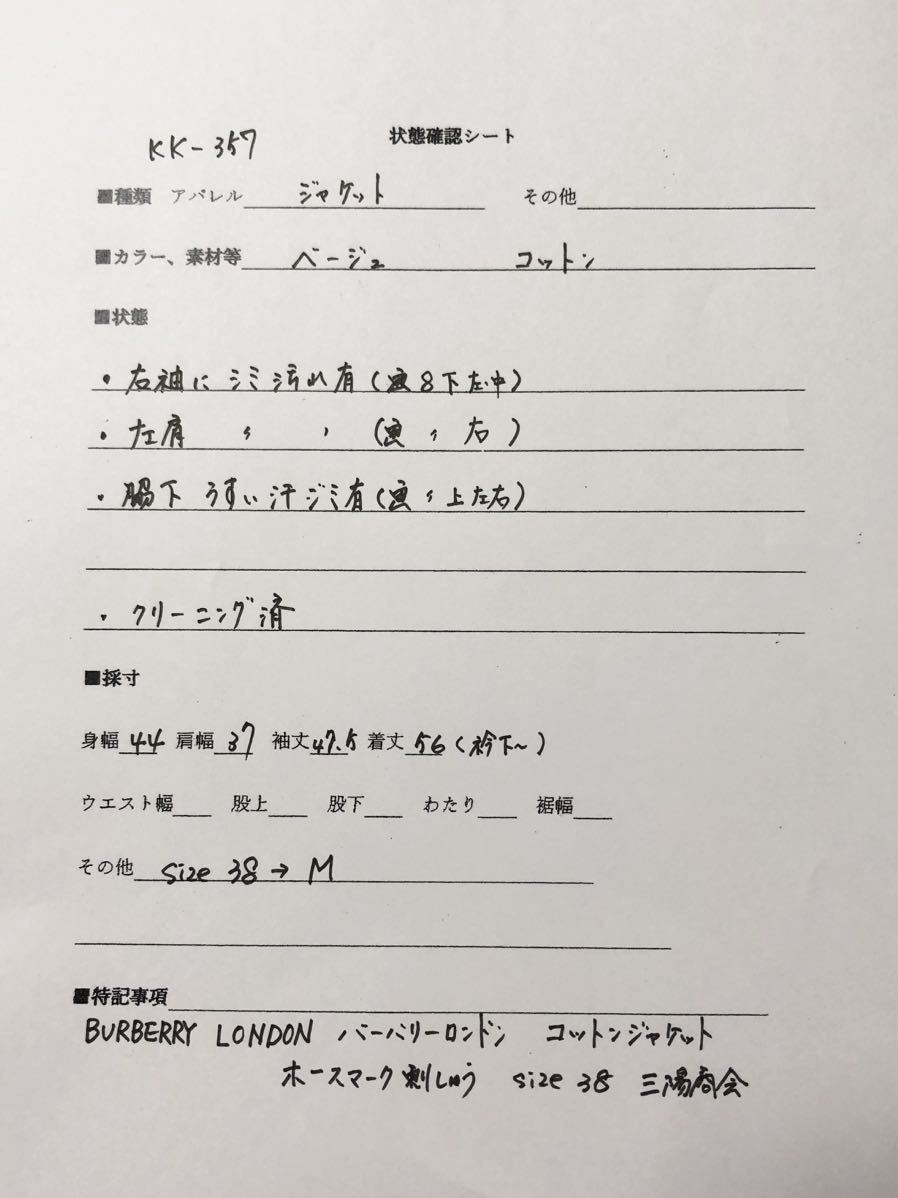 状態確認シート
KK-357
■種類 アパレル ジャケット その他
■カラー、素材等 ベージュ コットン
■状態
・右袖にシミ汚れ有(画8下左中)
・左肩 〃 , (画〃右)
・脇下 うすい汗ジミ有(画〃上左右)
・クリーニング済
■採寸
身幅 44 肩幅 37 袖丈 47.5 着丈 56 (衿下~)
ウエスト幅 股上 股下 わたり 裾幅
その他 size 38 → M
■特記事項
BURBERRY LONDON バーバリーロンドン コットンジャケット
ホースマーク刺しゅう size 38 三陽商会